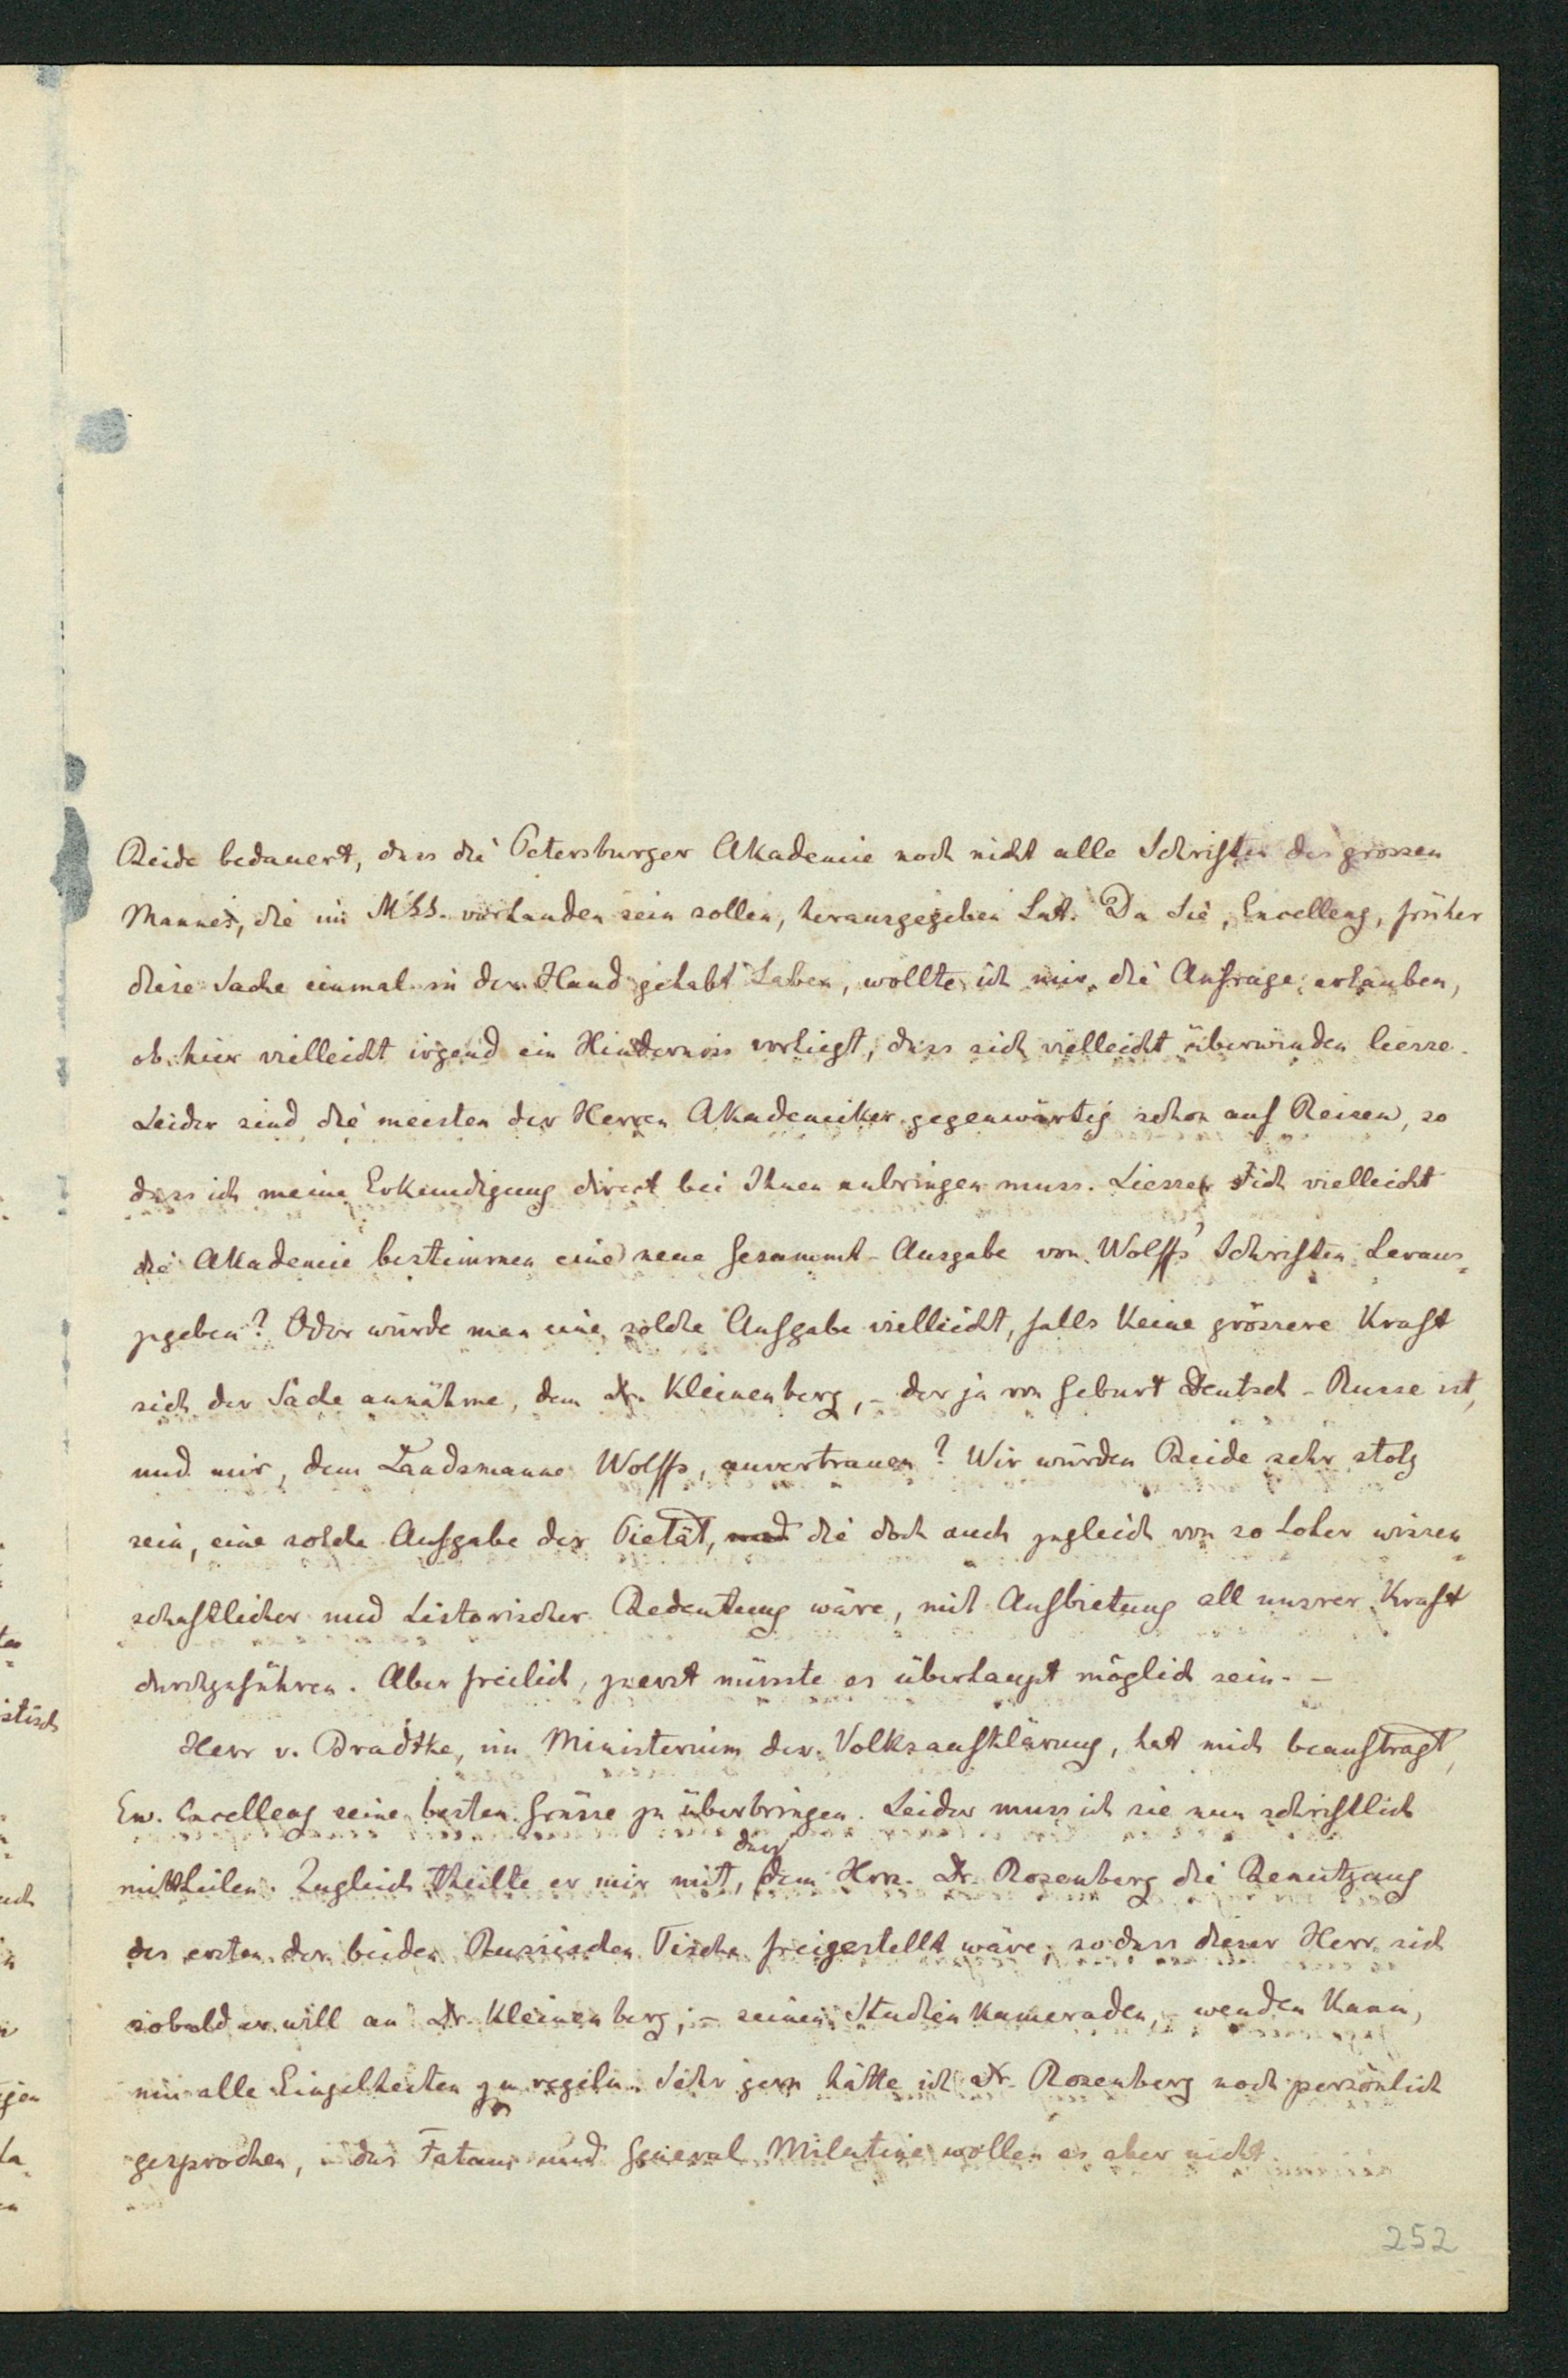 Beide bedauert, dass die Petersburger Akademie noch nicht alle Schriften des grossen
Mannes, die im MSS. vorhanden sein sollen, herausgegeben hat. Da Sie, Excellenz, früher
diese Sache einmal in der Hand gehabt haben, wollte ich mir die Anfrage erlauben,
ob hier vielleicht irgend ein Hinderniss vorliegt, dass sich vielleicht überwinden liesse.
Leider sind die meisten der Herren Akademiker gegenwärtig schon auf Reisen, so
dass ich meine Erkundigung direct bei Ihnen anbringen muss. Liesse sich vielleicht
die Akademie bestimmen eine neue Gesammt-Ausgabe von Wolff's Schriften heraus-
zugeben? Oder würde man eine solche Aufgabe vielleicht, falls keine grössere Kraft
sich der Sache annähme, dem Dr. Kleinenberg, – der ja von Geburt Deutsch-Russe ist,
und mir, dem Landsmanne Wolffs, anvertrauen? Wir würden Beide sehr stolz
sein, eine solche Aufgabe der Pietät, und die doch auch zugleich von so hoher wissen-
schaftlicher und historischer Bedeutung wäre, mit Aufbietung all unsrer Kraft
durchzuführen. Aber freilich, zuerst müsste es überhaupt möglich sein. –
Herr v. Bradtke, im Ministerium der Volksaufklärung, hat mich beauftragt,
Ew. Excellenz seine besten Grüsse zu überbringen. Leider muss ich sie nun schriftlich
mittheilen. Zugleich theilte er mir mit, dass dem Hrn. Dr. Rosenberg die Benutzung
des ersten der beiden Russischen Tische freigestellt wäre, so dass dieser Herr sich
sobald er will an Dr. Kleinenberg, – seinen Studienkameraden, – wenden kann,
um alle Einzelheiten zu regeln. Sehr gern hätte ich Dr. Rosenberg noch persönlich
gesprochen, das Fatum und General Milutine wollen es aber nicht.
252